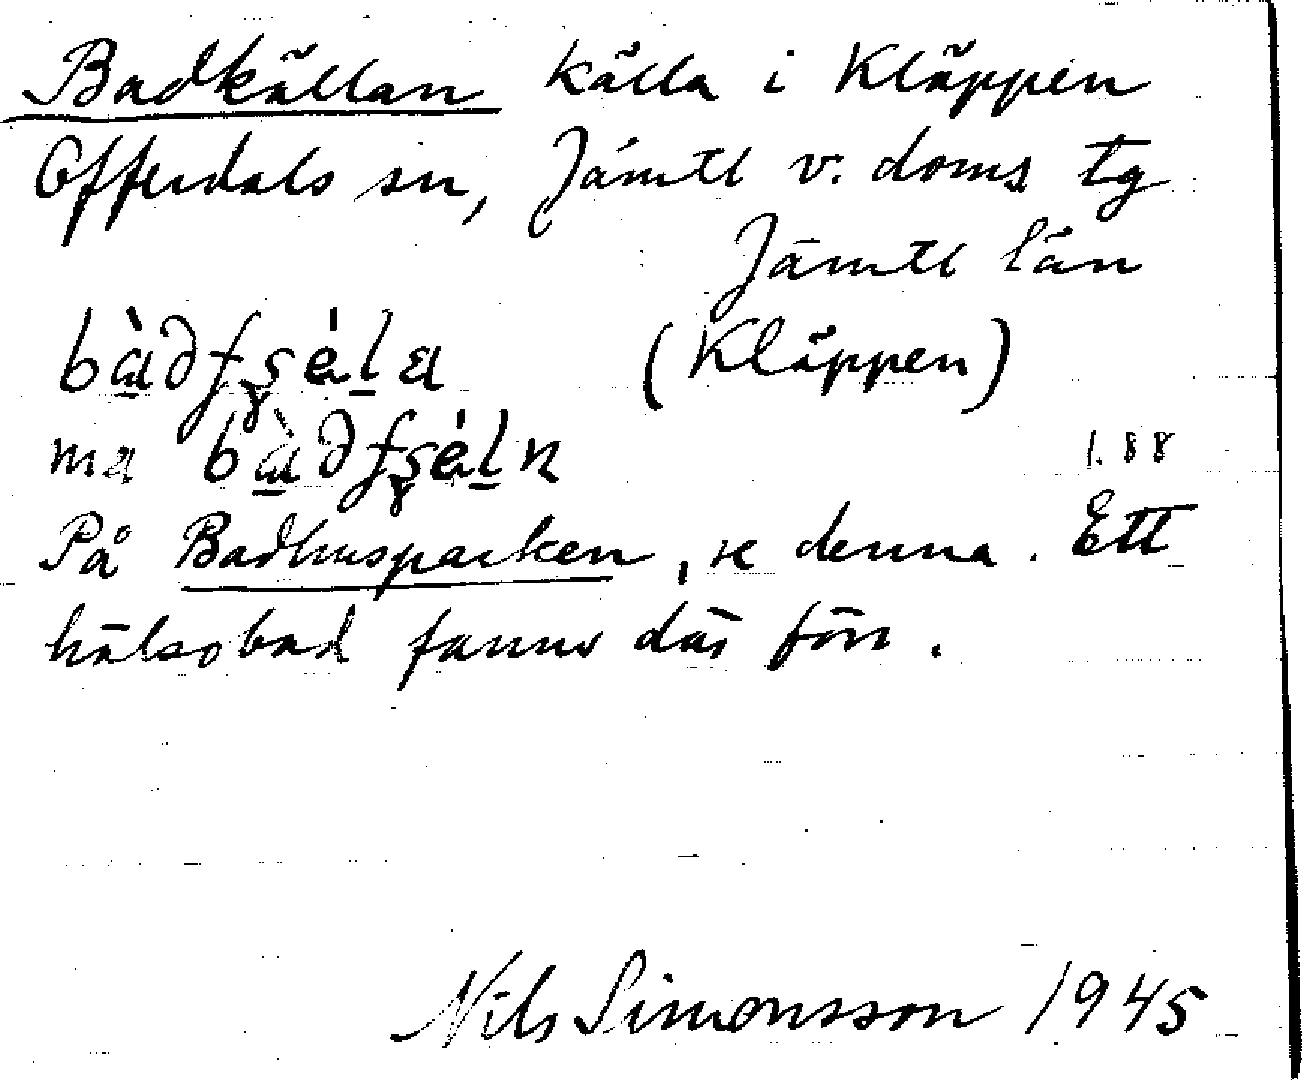 Badkällan källa i Kläppen
Offerdals sn, Jämtl v. doms tg
Jämtl län
(Kläppen)
ma
1.88
På Badhusparken, se denna. Ett
hälsobad fanns där förr.
Nils Simonsson 1945